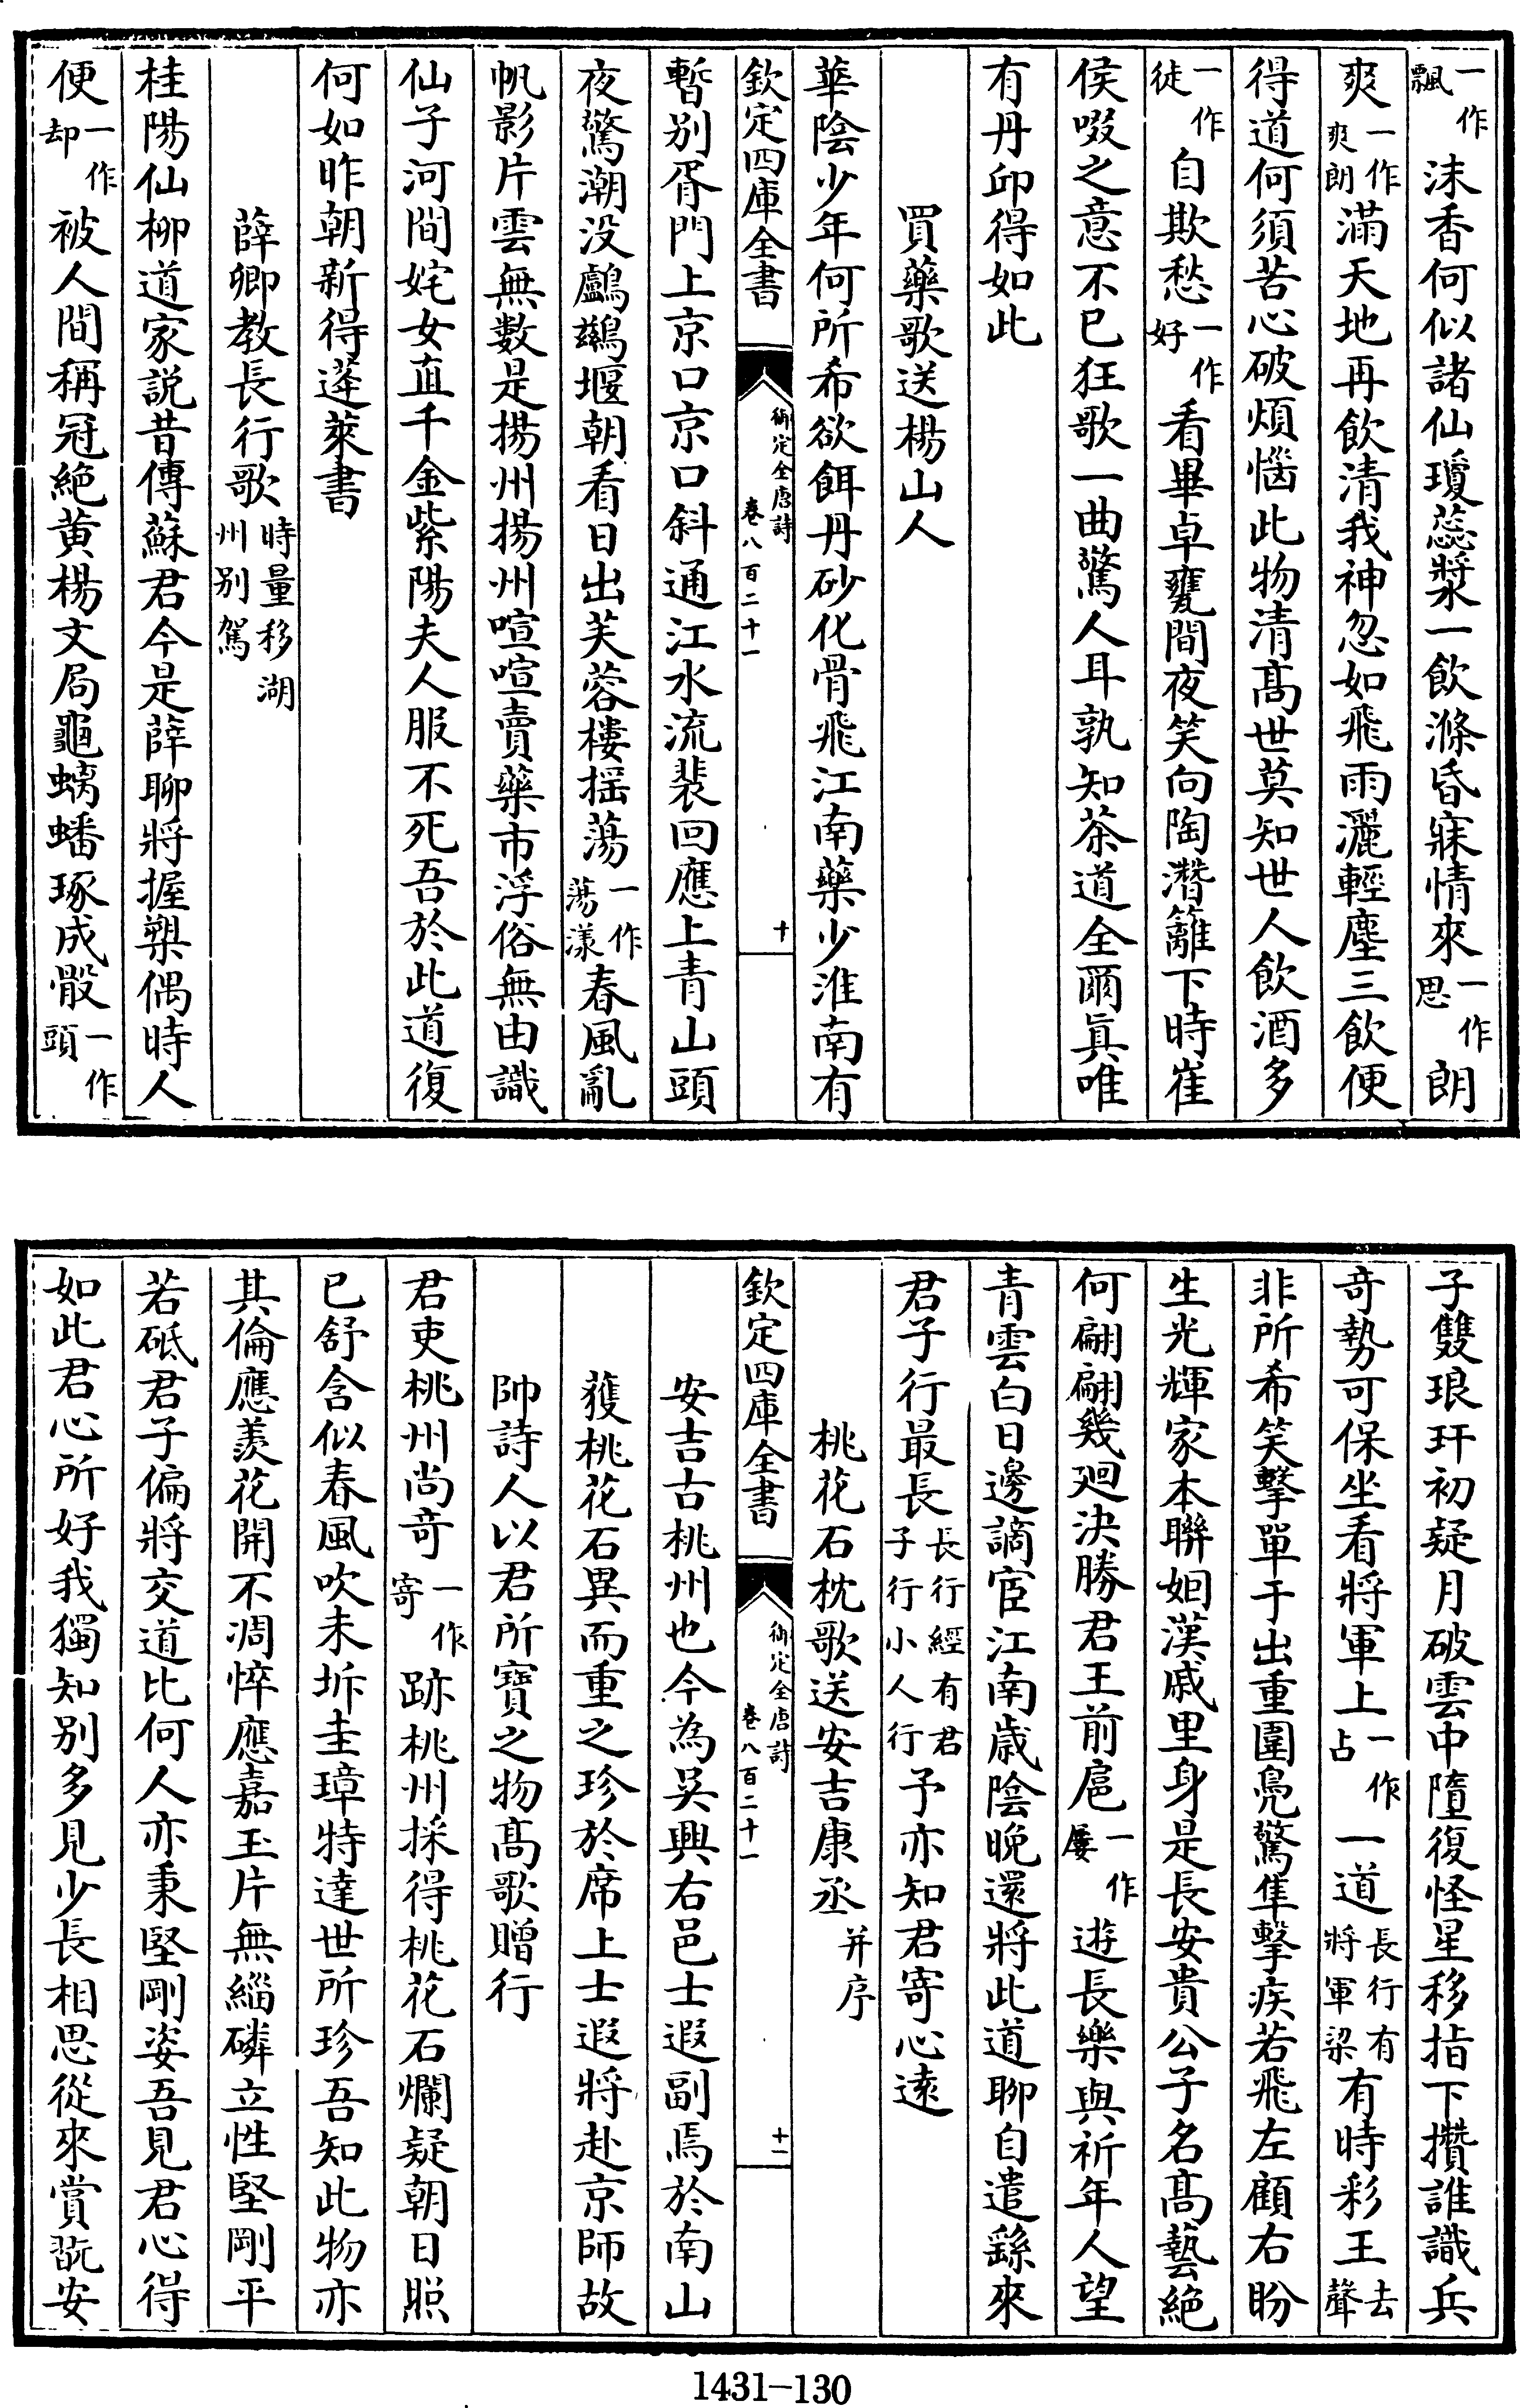 一作飄沫香何似諸仙瓊蕊漿一飲滌昏寐情來一作思朗
爽一作爽朗滿天地再飲清我神忽如飛雨灑輕塵三飲便
得道何須苦心破煩惱此物清髙世莫知世人飲酒多
一作徒自欺愁一作好看畢卓甕間夜笑向陶潛籬下時崔
侯啜之意不已狂歌一曲驚人耳孰知茶道全爾眞唯
有丹邱得如此
買藥歌送楊山人
華陰少年何所希欲餌丹砂化骨飛江南藥少淮南有
欽定四庫全書 御定全唐詩 卷八百二十一 十
暫别胥門上京口京口斜通江水流裴回應上青山頭
夜驚潮没鸕鷀堰朝看日出芙蓉樓揺蕩一作蕩漾春風亂
帆影片雲無數是揚州揚州喧喧賣藥市浮俗無由識
仙子河間姹女直千金紫陽夫人服不死吾於此道復
何如昨朝新得蓬萊書
薛卿教長行歌時量移湖州别駕
桂陽仙柳道家説昔傳蘇君今是薛聊將握槊偶時人
便一作却被人間稱冠絶黄楊文局龜螭蟠琢成骰一作頭
子雙琅玕初疑月破雲中墮復怪星移指下攢誰識兵
竒勢可保坐看將軍上一作占一道長行有將軍梁有時彩王去聲
非所希笑擊單于出重圍鳬驚隼擊疾若飛左顧右盼
生光輝家本聯姻漢戚里身是長安貴公子名髙藝絶
何翩翩幾廻決勝君王前扈一作屢遊長樂與祈年人望
青雲白日邊謫宦江南歲陰晚還將此道聊自遣繇來
君子行最長長行經有君子行小人行予亦知君寄心逺
桃花石枕歌送安吉康丞并序
欽定四庫全書 御定全唐詩 卷八百二十一 十一
安吉古桃州也今為吳興右邑士遐副焉於南山
獲桃花石異而重之珍於席上士遐將赴京師故
帥詩人以君所寶之物髙歌贈行
君吏桃州尚竒一作寄跡桃州採得桃花石爛疑朝日照
已舒含似春風吹未坼圭璋特達世所珍吾知此物亦
其倫應羨花開不凋悴應嘉玉片無緇磷立性堅剛平
若砥君子偏將交道比何人亦秉堅剛姿吾見君心得
如此君心所好我獨知别多見少長相思從來賞翫安
1431-130